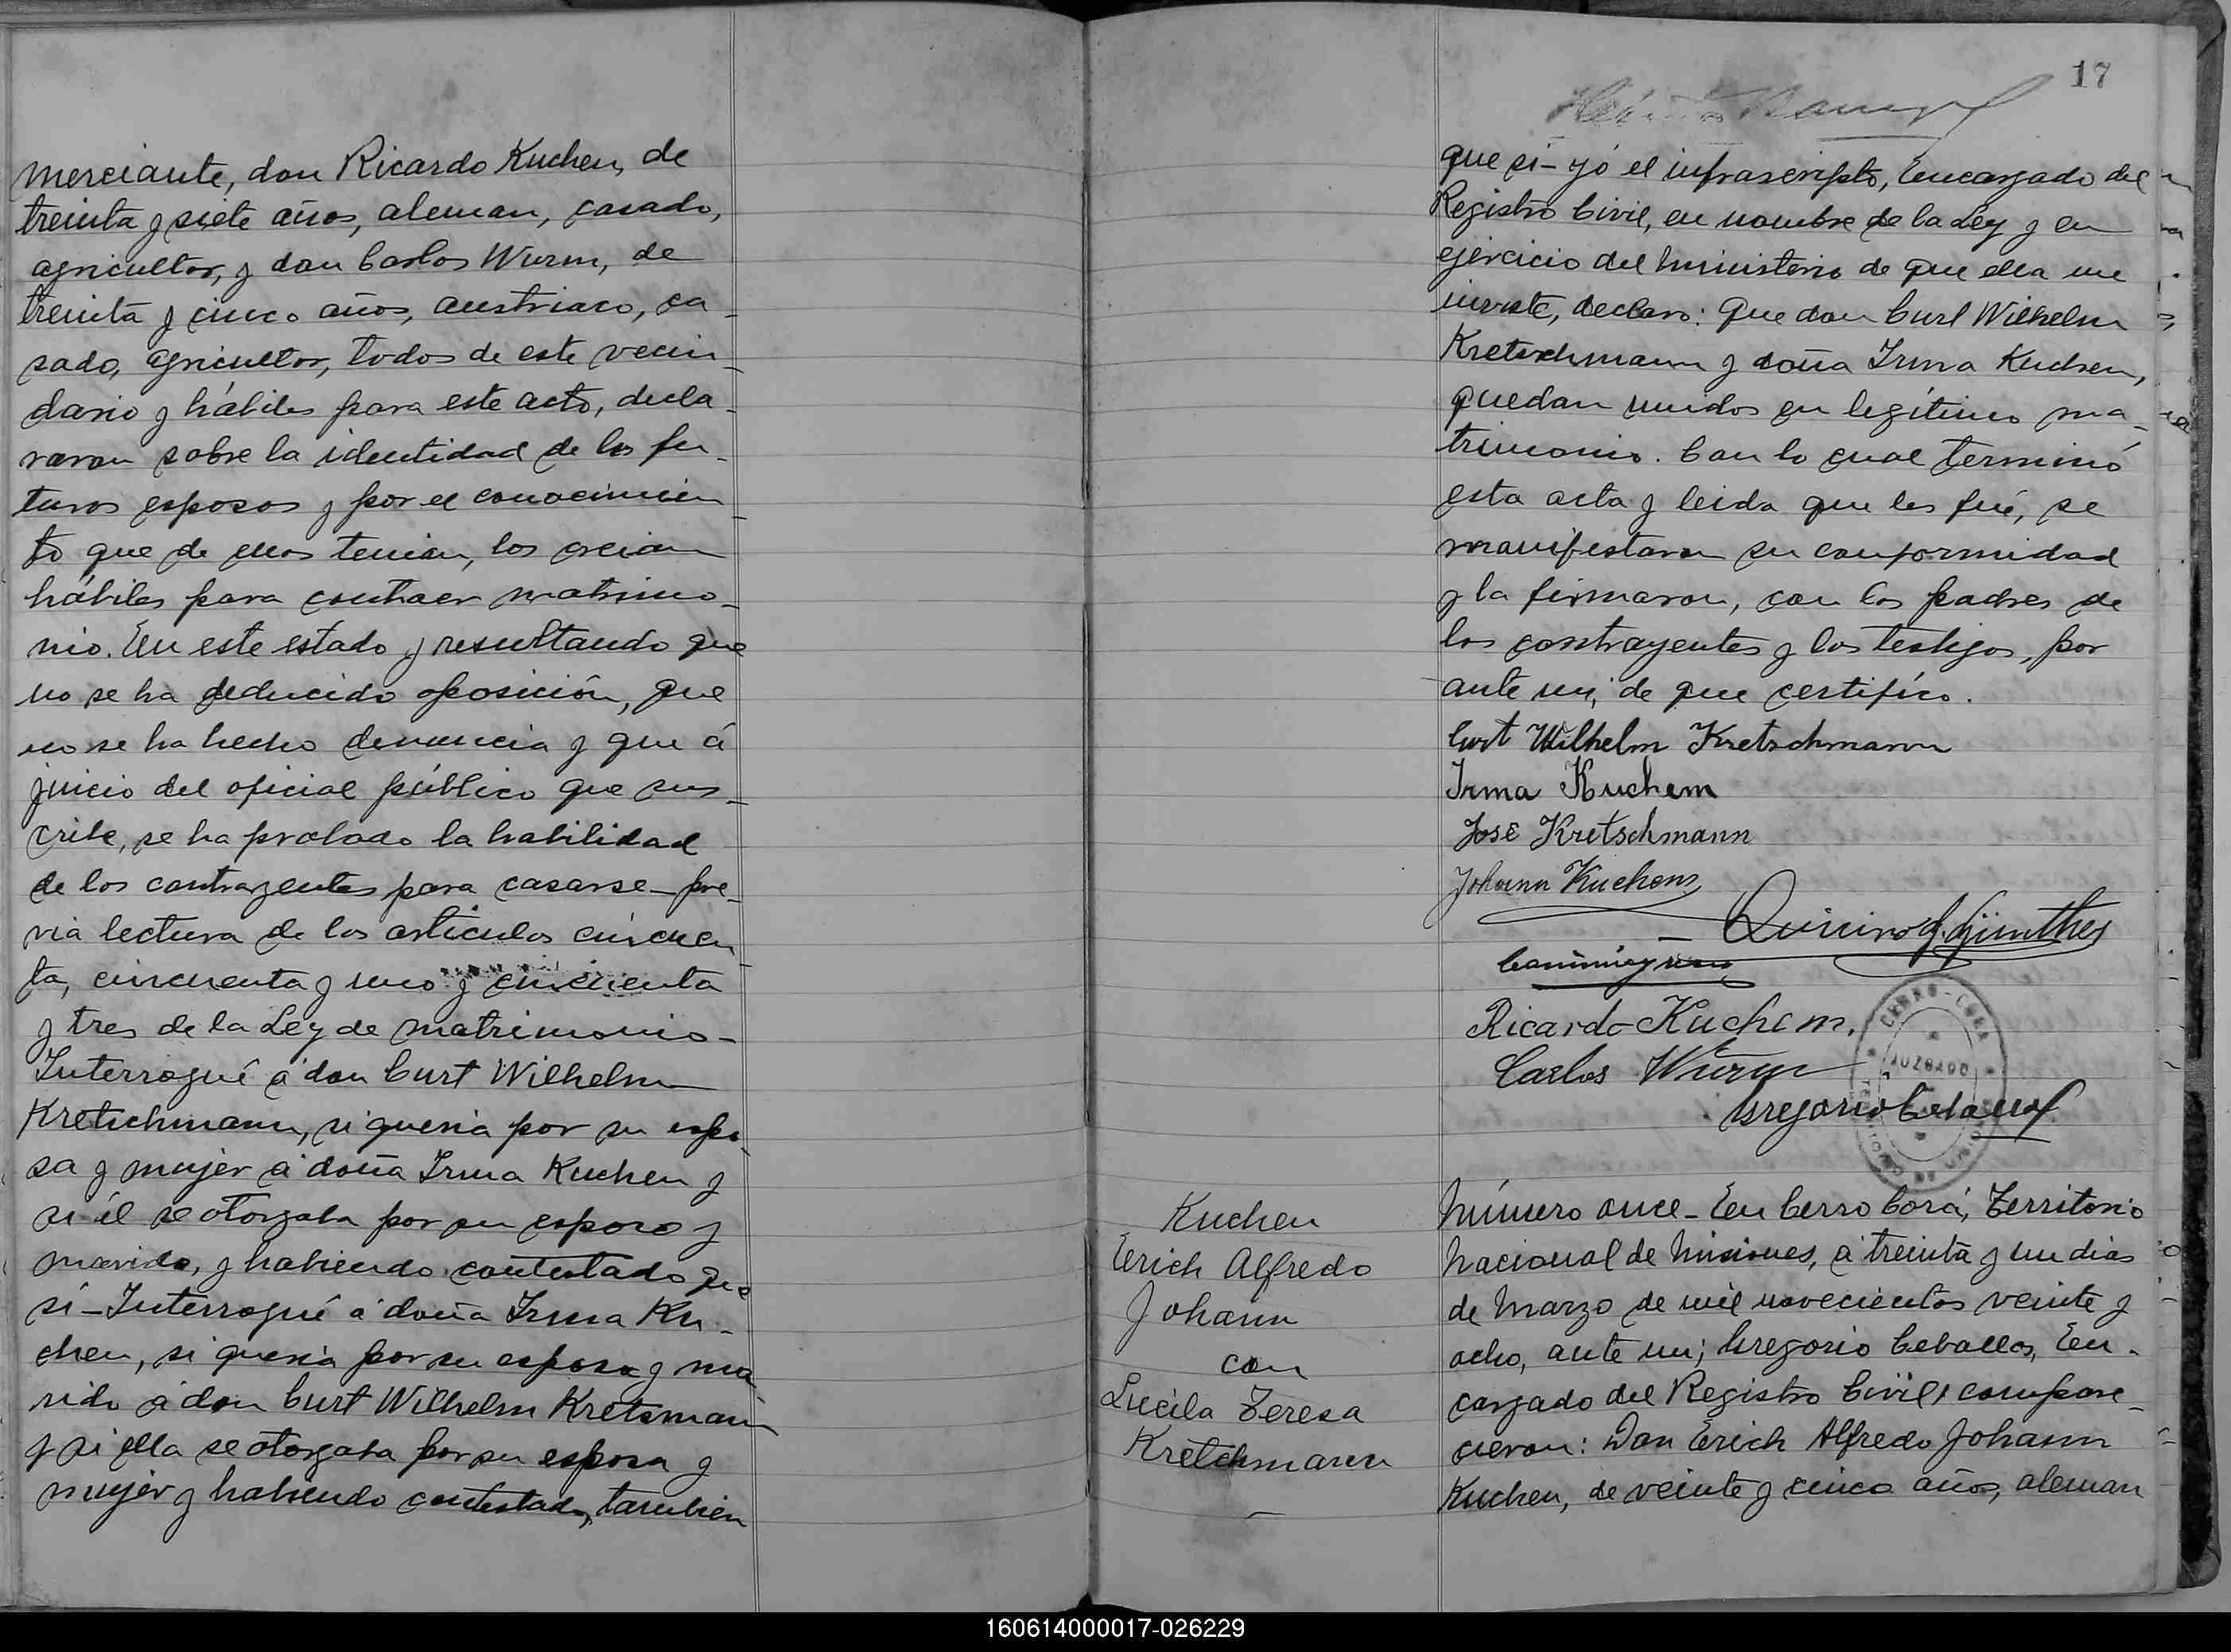 merciante, don Ricardo Kuchen, de
treinta y siete años, aleman, casado,
agricultor, y don Carlos Wurm, de
treinta y cinco años, austriaco, ca-
sado, agricultor, todos de este vecin-
dario y hábiles para este acto, decla-
raron sobre la identidad de los fu-
turos esposos y por el conocimien-
to que de ellos tenian, los creian
hábiles para contraer matrimo-
nio. En este estado y resultando que
no se ha deducido oposición, que
no se ha hecho denuncia y que á
juicio del oficial público que sus-
cribe, se ha probado la habilidad
de los contrayentes para casarse - pre-
via lectura de los articulos cincuen-
ta, cincuenta y uno y cincuenta
y tres de la Ley de matrimonio -
Interrogué á don Curt Wilhelm
Kretschmann, si queria por su espo-
sa y mujer á doña Irma Kuchen y
si él se otorgaba por su esposo y
marido, y habiendo contestado que
sí - Interrogué á doña Irma Ku-
chen, si queria por su esposo y ma-
rido á don Curt Wilhelm Kretsmann
y si ella se otorgaba por su esposa y
mujer y habiendo contestado, tambien
17
que sí - yó el infrascripto, Encargado del
Registro Civil, en nombre de la Ley y en
ejercicio del ministerio de que ella me
inviste, declaro: Que don Curt Wilhelm
Kretschmann y doña Irma Kuchen,
quedan unidos en legítimo ma-
trimonio. Con lo cual terminó
esta acta y leida que les fué, se
manifestaron su conformidad
y la firmaron, con los padres de
los contrayentes y los testigos, por
ante mi, de que certifico.
Curt Wilhelm Kretschmann
Irma Kuchem
José Kretschmann
Johann Kuchem
Quirino J. Günther
Ricardo Kuchem.
Carlos Wurm
CERRO-CORA
JUZGADO
Gregorio Ceballos
Kuchen
Erich Alfredo
Johann
con
Lucila Teresa
Kretchmann
Número once - En Cerro Corá, Territorio
Nacional de Misiones, á treinta y un dias
de Marzo de mil novecientos veinte y
ocho, ante mi; Gregorio Ceballos, En-
cargado del Registro Civil, compare-
cieron: Don Erich Alfredo Johann
Kuchen, de veinte y cinco años, aleman
160614000017-026229